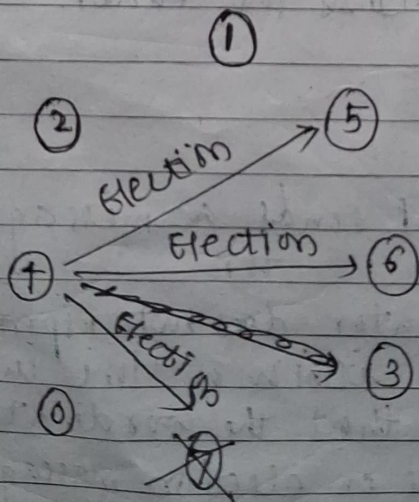 1
2
5
Election
Election
4
6
Election
3
0